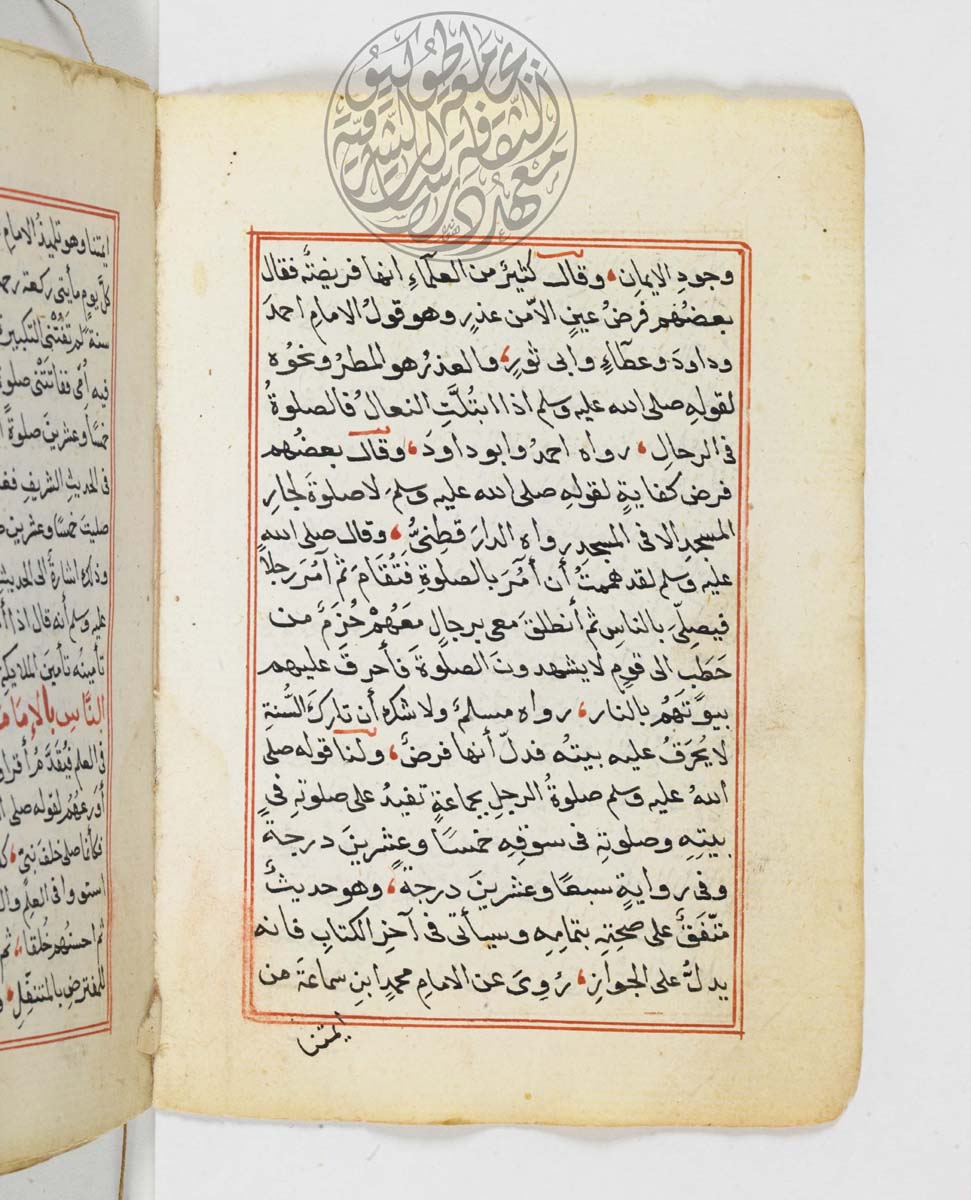 وجودِ الايمانِ، وقال كثيرٌ من العلمآءِ انها فريضةٌ فقال
بعضُهُم فرضُ عينٍ الاّ من عذرٍ وهو قولُ الامامِ احمدَ
وداودَ وعطآءٍ وابى ثورٍ، والعذرُ هو المطرُ ونحوُه
لقولهِ صلى الله عليه وسلم اذا ابتُلَّتِ النعالُ فالصلوةُ
فى الرحالِ، رواه احمدُ وابو داودَ، وقال بعضُهم
فرض كفايةٍ لقولهِ صلى الله عليه وسلمَ لا صلوةَ لجارِ
المسجدِ الا فى المسجدِ رواه الدارَ قطِنىُّ، وقال صلى الله
عليه وسلم لقد هممتُ أن أمُرَ بالصلوةِ فَتُقامَ ثم آمُرَ رجلاً
فيصلّىَ بالناسِ ثم أنطلقَ معى برجالٍ معَهُمْ حُزَمٌ من
حَطَبٍ الى قومٍ لا يشهدونَ الصلوةَ فأحرقَ عليهم
بيوتَهُم بالنار، رواه مسلمٌ ولا شك أن تاركَ السُّنةِ
لا يُحرَقُ عليه بيتُه فدلّ أنها فرضٌ، ولنا قوله صلى
اللهُ عليه وسلم صلوةُ الرجلِ بجماعةٍ تفيدُ على صلوتِهِ فى
بيتِهِ وصلوتِهِ فى سوقِهِ خمسًا وعِشرينَ درجةً
وفى روايةٍ سبعًا وعشرينَ درجةً، وهو حديثٌ
متّفَقٌ على صحّتِهِ بتمامِهِ وسيأتى فى آخرِ الكتابِ فانه
يدلُّ على الجوازِ، رُوِىَ عن الامامِ محمدِ ابنِ سماعةَ من
ائمتنا
ايمتنا وهو تلميذُ الامام
كلَّ يومٍ مأيتى ركعة
سنة لم تَفُتْنى التكبير
فيه اُمّى ففاتَتْنى صلوة
خمسًا وعشرينَ صلوةً
فى الحديثِ الشريفِ
صليتَ خمسًا وعشرين
وذكره اشارةً الى الحديث
عليه وسلم أنه قال اذا
تأمينُه تأمينَ الملايكة
الناسِ بالإمامة
فى العلم فيُقدَّمُ أقرا
أورعُهُم لقوله صلى
فكأنما صلى خلفَ نبىٍّ،
استووا فى العلمِ
ثم احسنُهم خُلُقًا، ثم
للمفترضِ بالمتنفّلِ،
معهد الثقافة والدراسات الشرقية